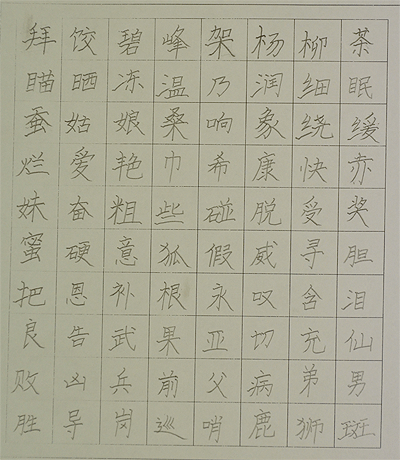 拜饺碧峰架杨柳茶
瞄晒冻温乃润细眠
蚕姑娘桑响象绕缓
烂爱艳巾希康快亦
妹奋粗些碰脱受奖
蜜硬意狐假威寻胆
把恩补根永叹含泪
良告武果亚切充仙
败凶兵前父病弟男
胜导岗巡哨鹿狮斑